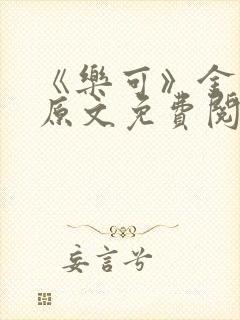 《樂可》金
原文免費閱
妄言兮